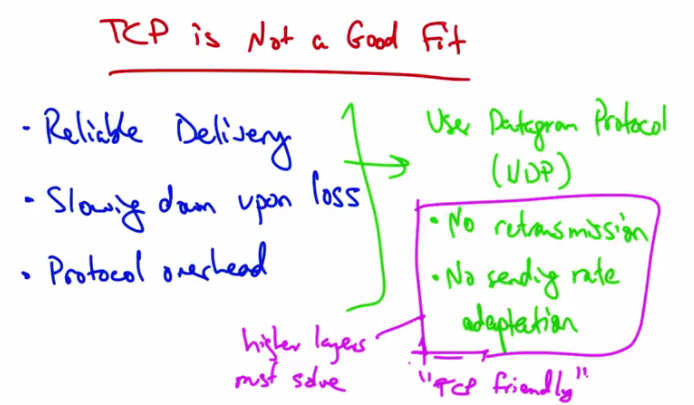 TCP is Not a Good Fit
· Reliable Delivery
· Slowing down upon loss
· Protocol overhead
User Datagram Protocol
(UDP)
· No retransmission
· No sending rate
adaptation
higher layers
must solve
"TCP friendly"